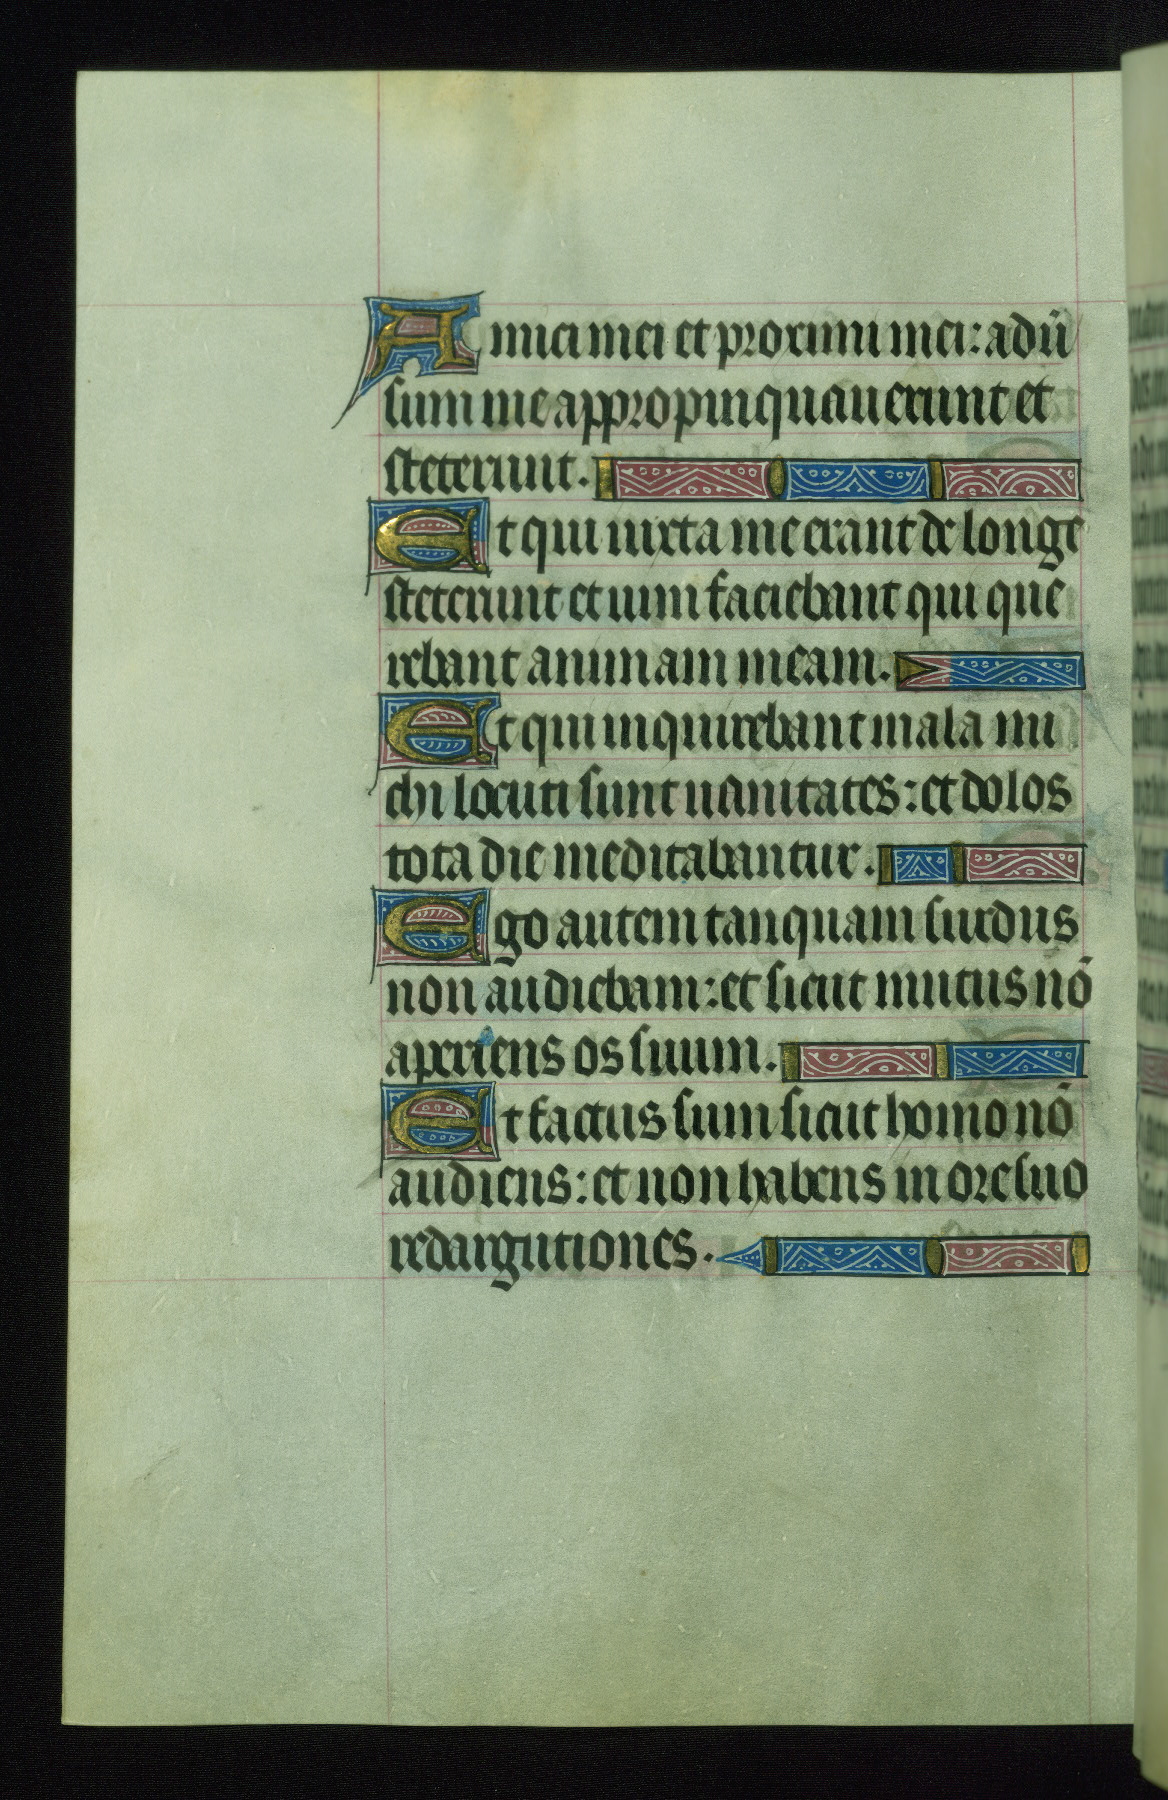 Amici mei et proximi mei: aduẽ
sum me appropinquauerunt et
steterunt.
Et qui iuxta me erant de longe
steterunt et uim faciebant qui que
rebant animam meam.
Et qui inquirebant mala mi
chi locuti sunt uanitates: et dolos
tota die meditabantur.
Ego autem tanquam surdus
non audiebam: et sicut mutus nõ
aperiens os suum.
Et factus sum sicut homo nõ
audiens: et non habens in ore suo
redargutiones.